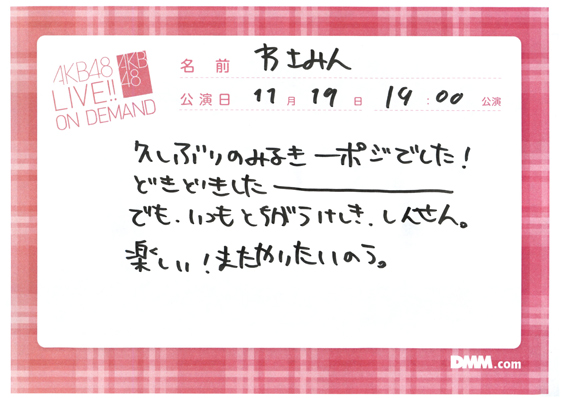 AKB48
LIVE!!
ON DEMAND
AKB
48
名前 わさみん
公演日 11月19日 14:00 公演
久しぶりのみるきーポジでした!
どきどきした―――
でも、いつもとちがうけしき、しんせん。
楽しい!またやりたいのう。
DMM.com